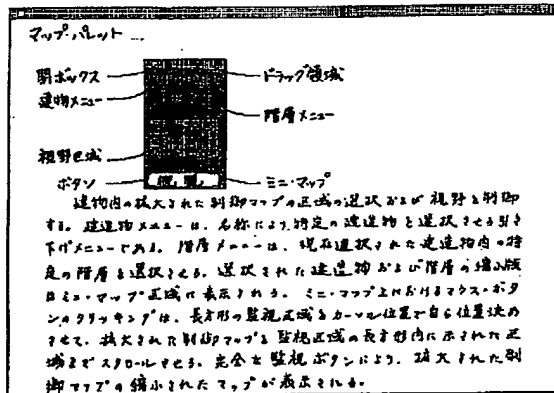 マップ・パレット …
閉ボックス
ドラッグ領域
建物メニュー
階層メニュー
視野区域
ボタン
ミニ・マップ
建物内の拡大された制御マップの区域の選択および視野を制御
する。建造物メニューは、名称により特定の建造物を選択させる引き
下げメニューである。階層メニューは、現在選択された建造物内の特
定の階層を選択させる。選択された建造物および階層の縮小版
はミニ・マップ区域に表示される。ミニ・マップ上におけるマウス・ボタ
ンのクリッキングは、長方形の監視区域をカーソル位置で自ら位置決め
させて、拡大された制御マップを監視区域の長方形内に示された区
域までスクロールさせる。完全な監視ボタンにより、拡大された制
御マップの縮小されたマップが表示される。